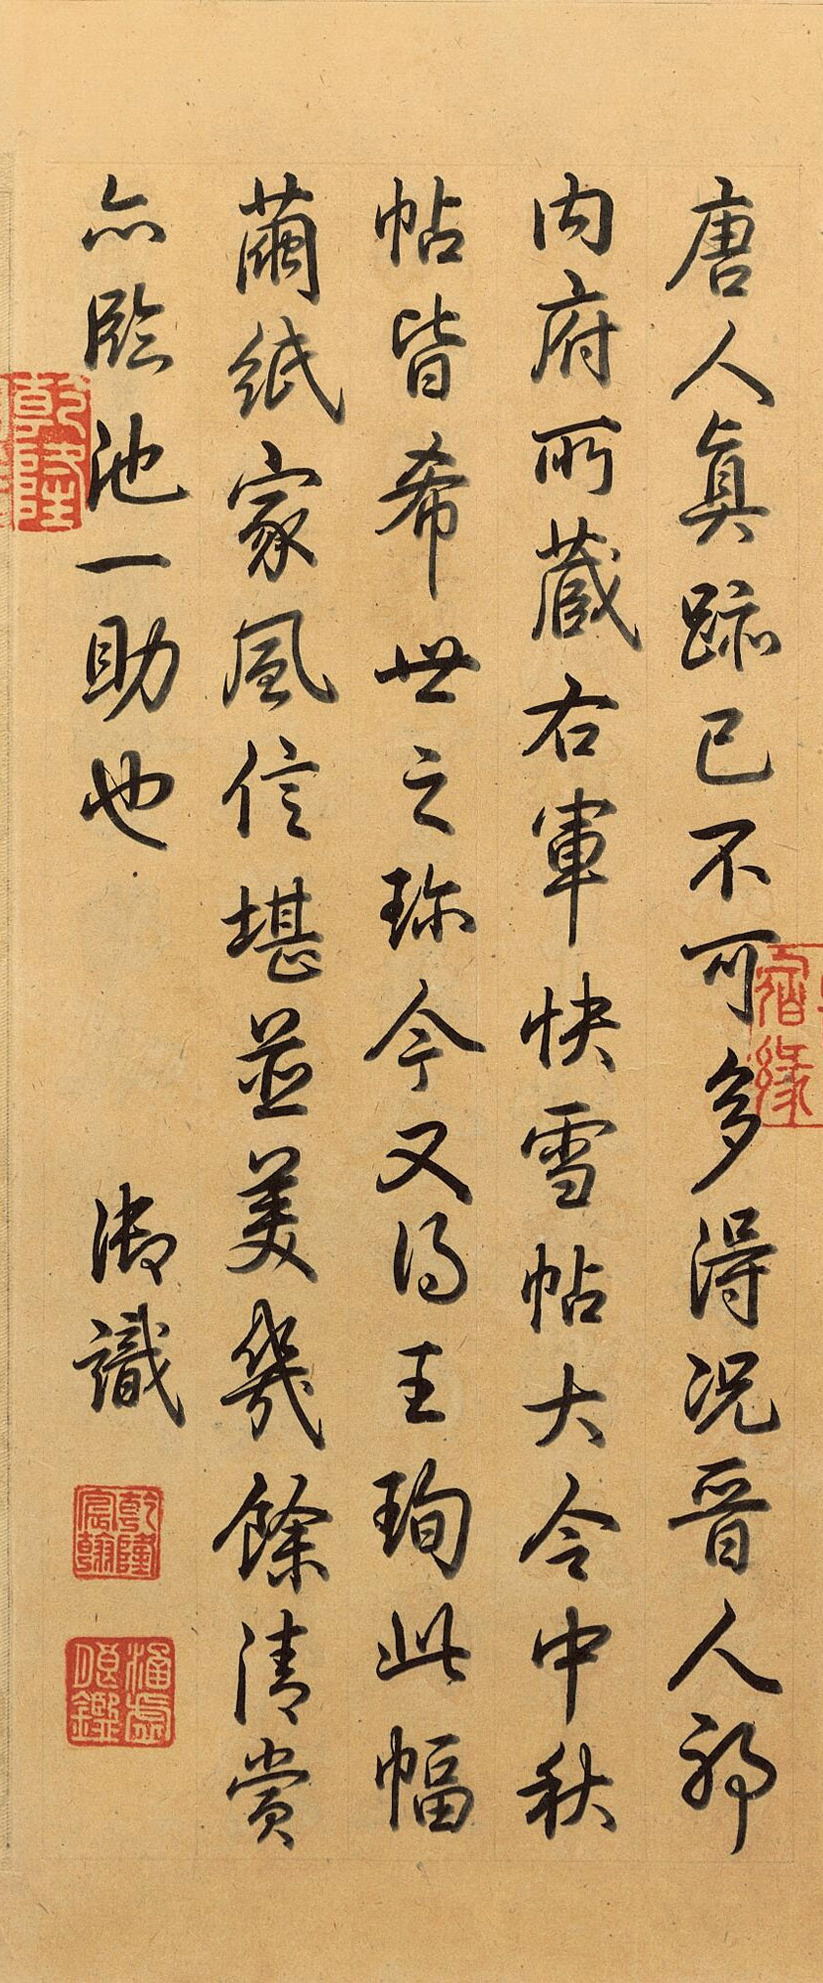 唐人真跡已不可多得況晉人耶
内府所藏右軍快雪帖大令中秋
帖皆希世之珎今又得王珣此幅
繭紙家風信堪並美幾餘清賞
亦臨池一助也　御識
乾隆宸翰